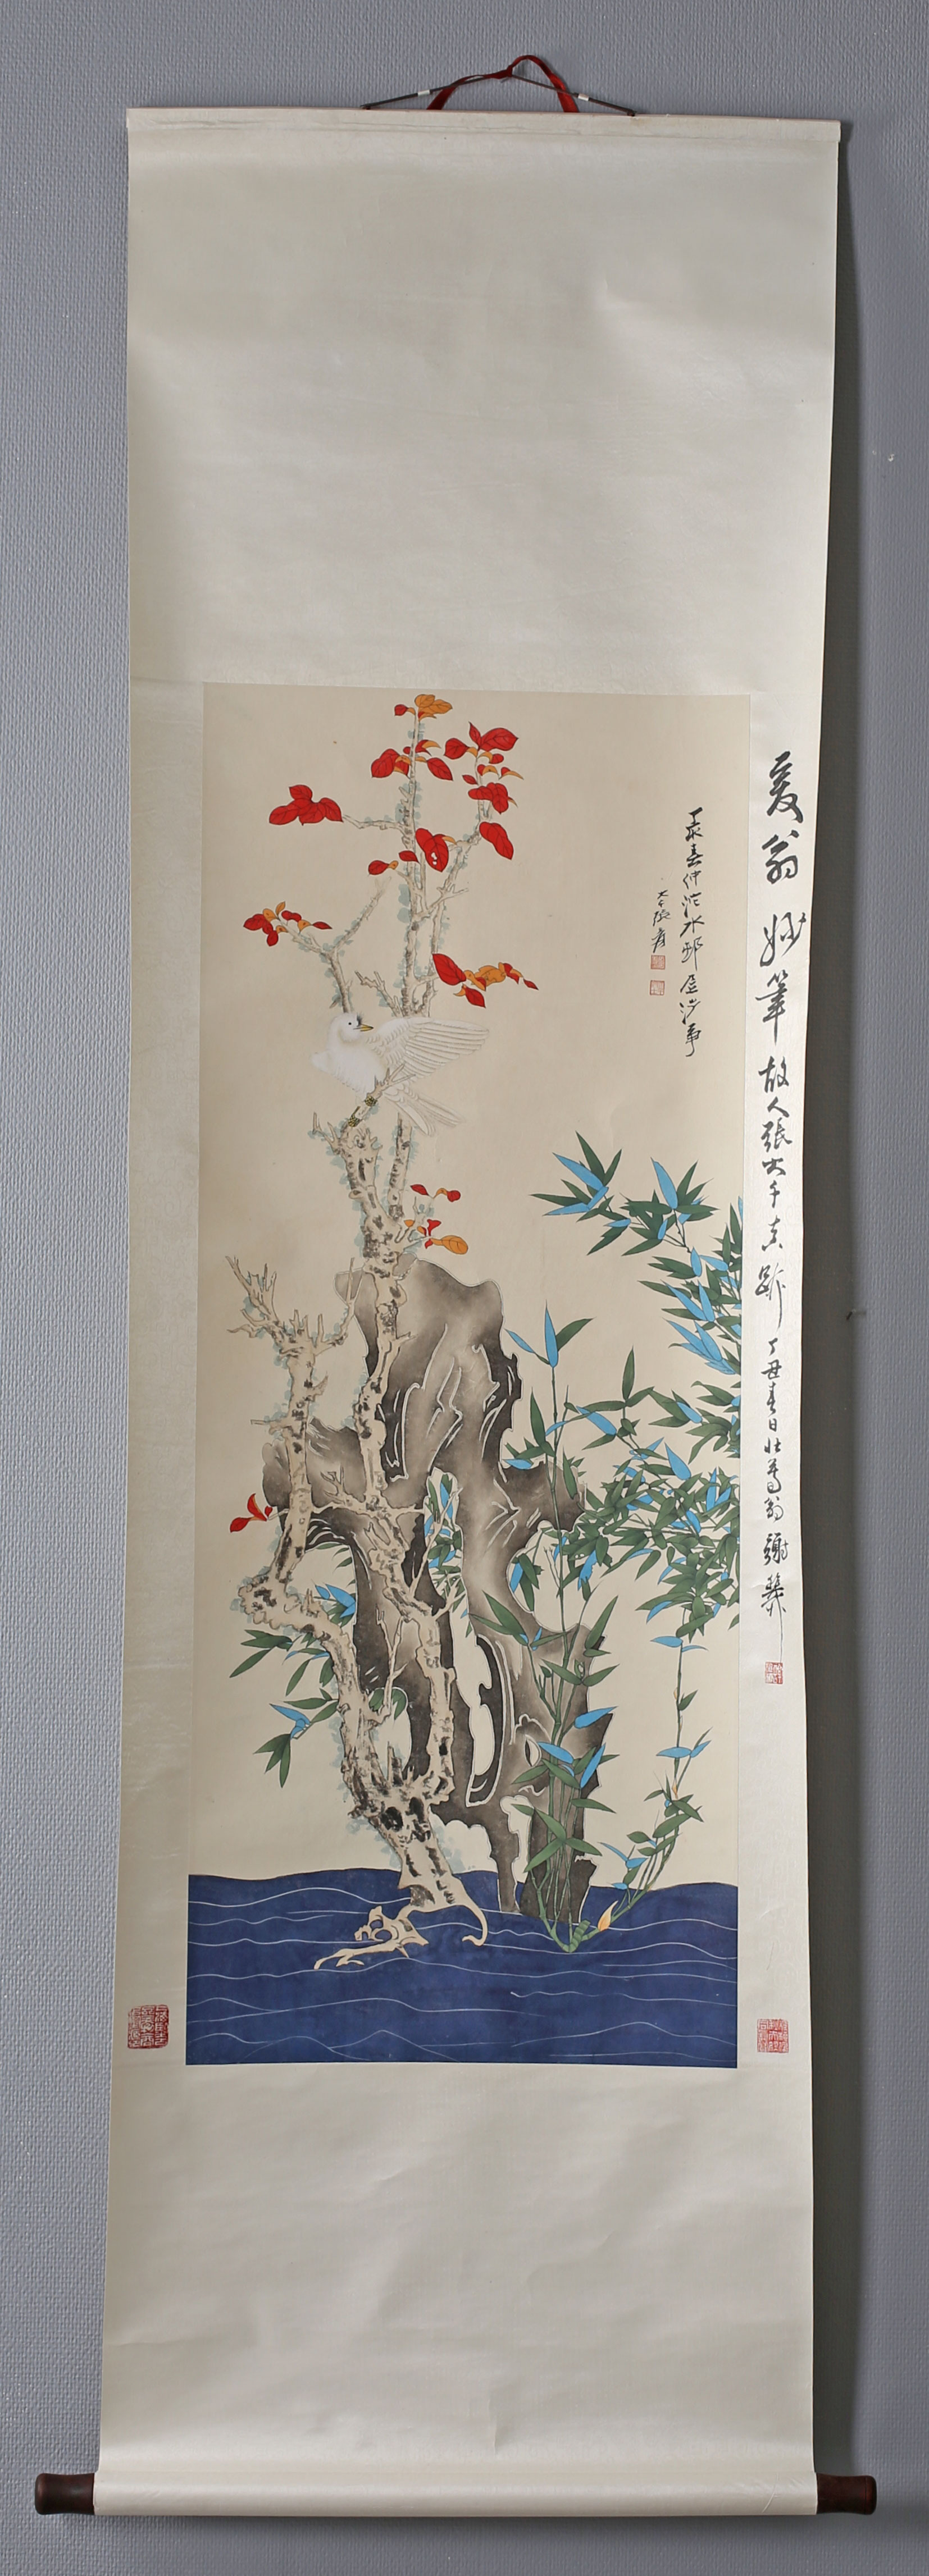 爰翁妙筆故人張大千真跡丁丑春日壯暮翁謝稚柳
丁亥春仲沱水邨居涉事
大千張爰